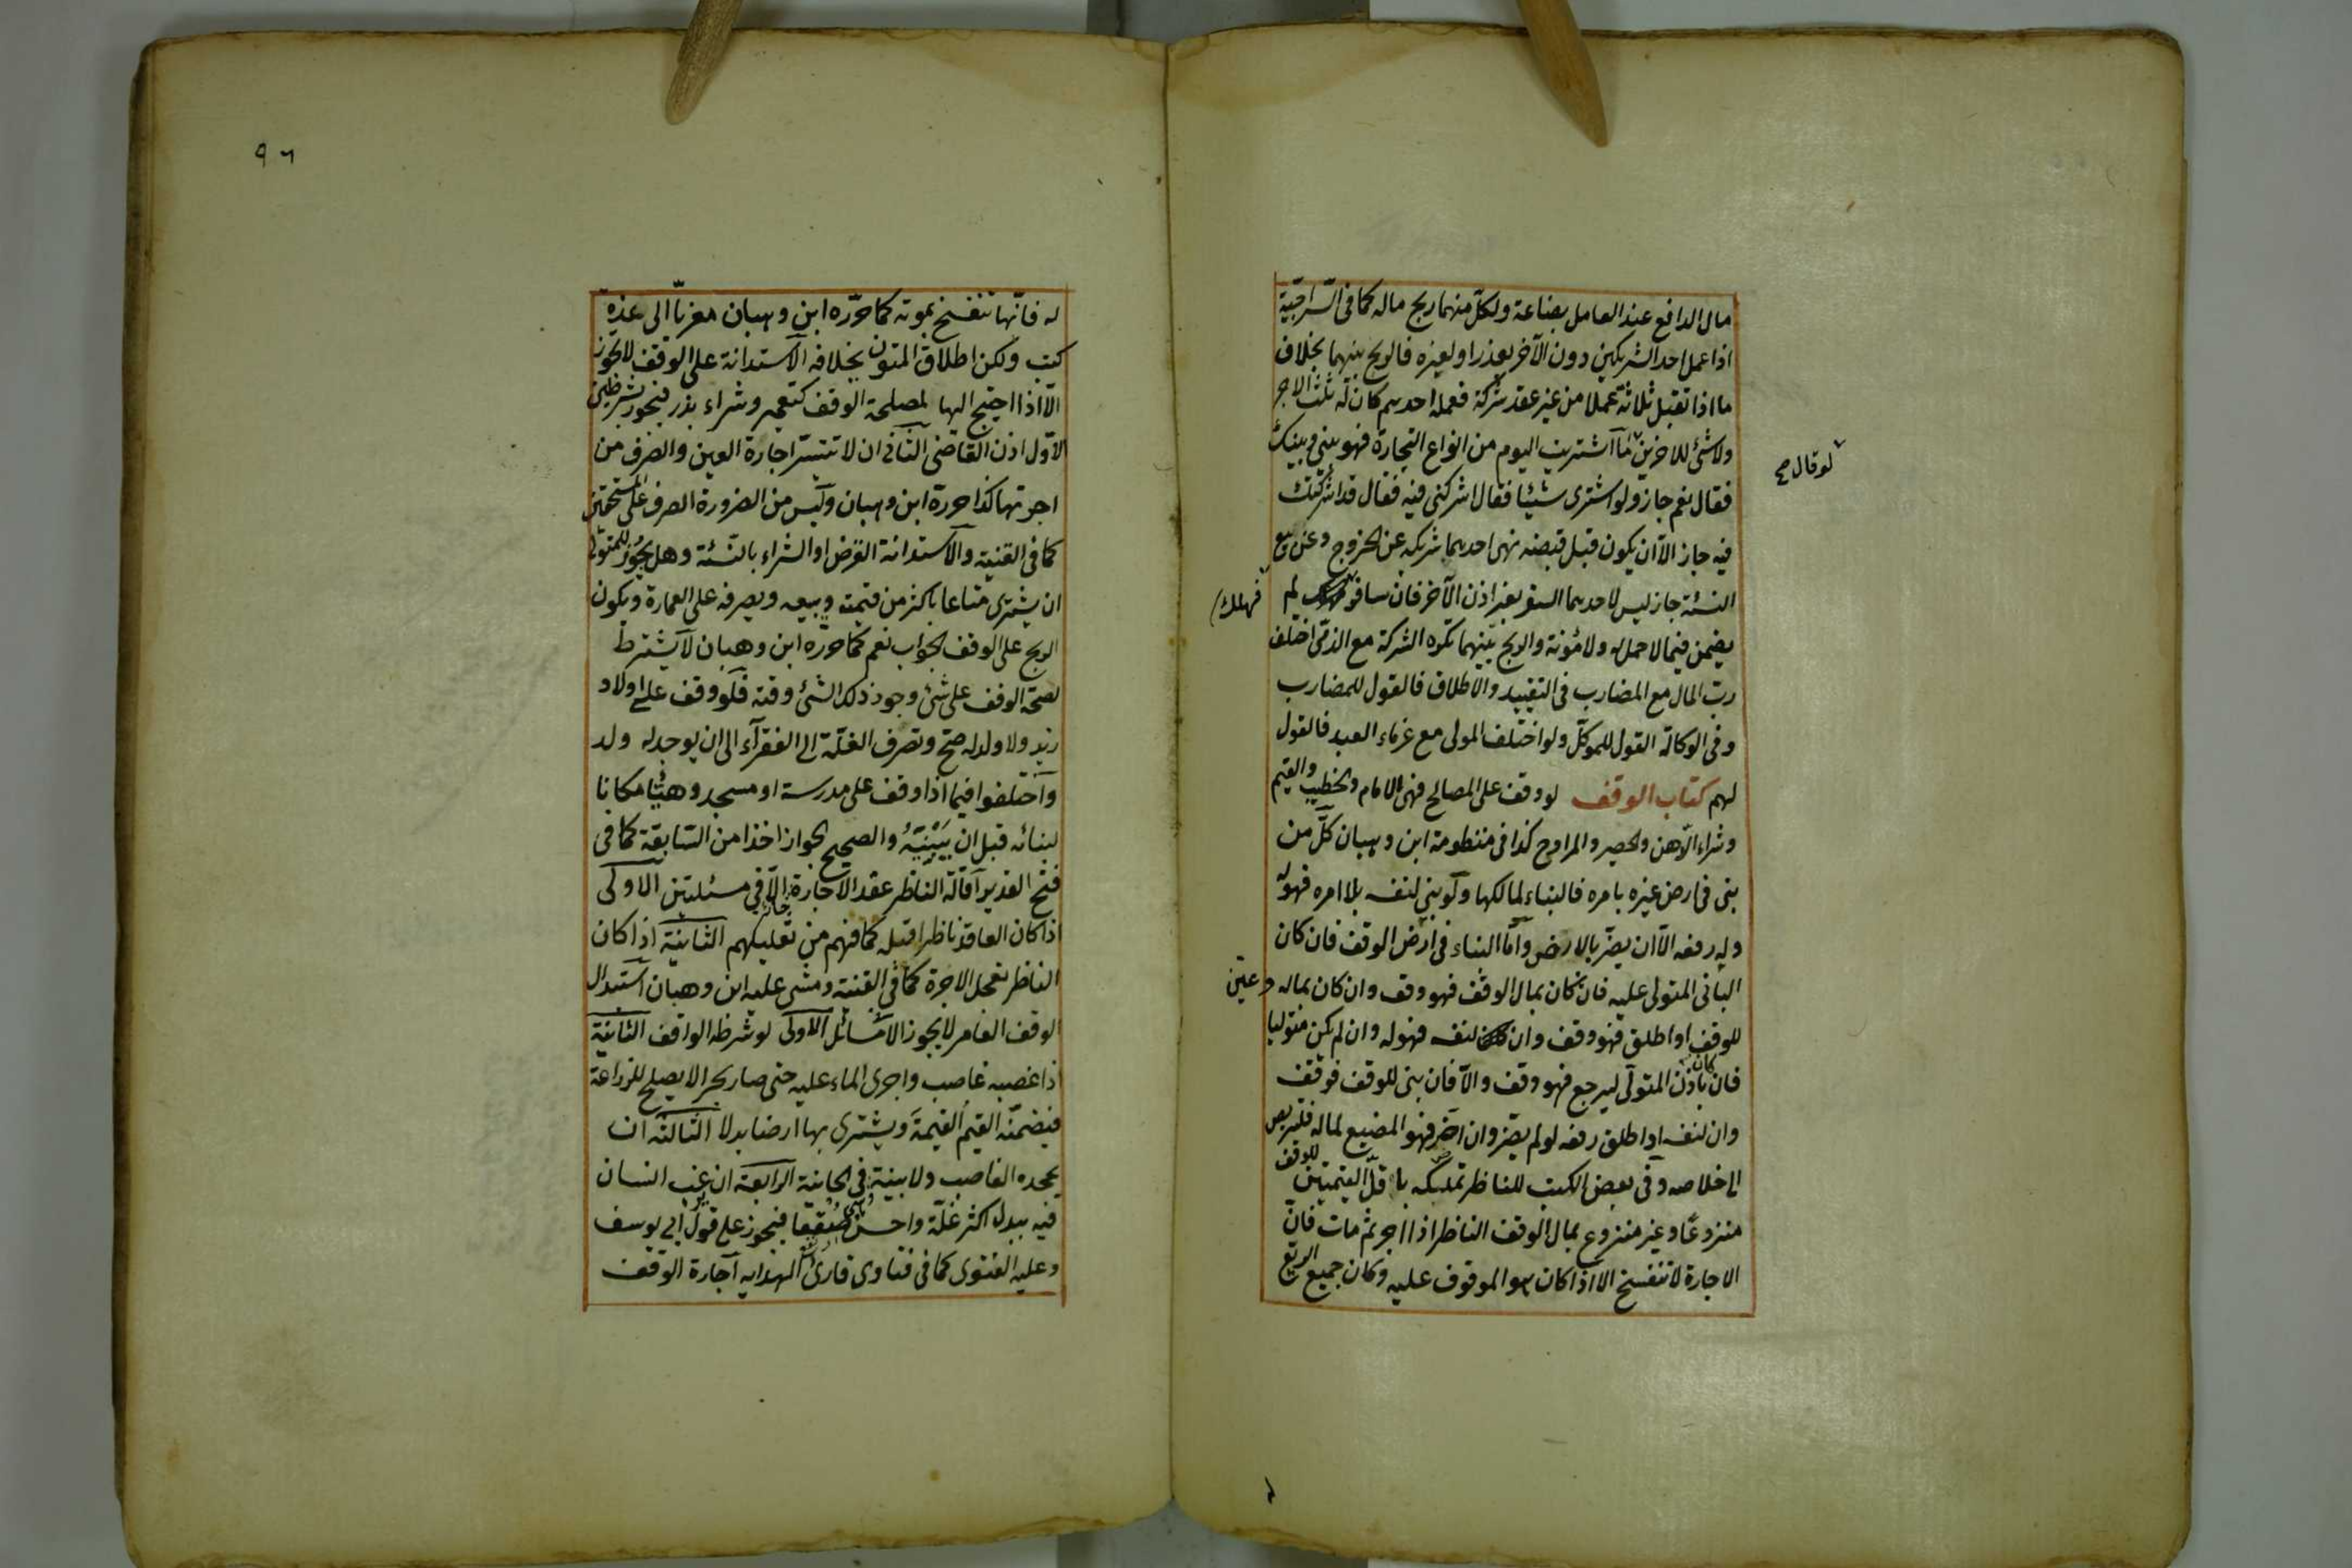 مال الدافع عند العامل بضاعة ولكل منهما ربح ماله كما فى السراجية
اذا عمل احد الشريكين دون الآخر بعذر او لغيره فالربح بينهما بخلاف
ما اذا تقبل ثلاثة عملا من غير عقد شركة فعمله احدهم كان له ثلث الاجر
ولا شئ للاخرين ما اشتريت اليوم من انواع التجارة فهو بينى وبينك
لو قال صح
فقال نعم جاز ولو اشترى شيئا فقال اشركنى فيه فقال قد اشركتك
فيه جاز الا ان يكون قبل قبضه نهى احدهما شريكه عن الخروج وعن بيع
النسئة جاز ليس لاحدهما السفر بغير اذن الآخر فان سافر لم
فهلك
يضمن فيما لا حمل له ولا مؤنة والربح بينهما تكره الشركة مع الذمى اختلف
رب المال مع المضارب فى التقييد والاطلاق فالقول للمضارب
وفى الوكالة القول للموكل ولو اختلف المولى مع غرماء العبد فالقول
لهم كتاب الوقف لو وقف على المصالح فهى للامام والخطيب والقيم
وشراء الدهن والحصير والمراوح كذا فى منظومة ابن وهبان كل من
بنى فى ارض غيره بامره فالبناء لمالكها ولو بنى لنفسه بلا امره فهو له
وله رفعه الا ان يضر بالارض واما البناء فى ارض الوقف فان كان
البانى المتولى عليه فان كان بمال الوقف فهو وقف وان كان بماله وعين
للوقف او اطلق فهو وقف وان لنفسه فهو له وان لم يكن متوليا
فان كان باذن المتولى ليرجع فهو وقف والا فان بنى للوقف فوقف
وان لنفسه او اطلق رفعه لو لم يضر وان اضر فهو المضيع لماله فليتربص
الى خلاصه وفى بعض الكتب للناظر تملكه باقل القيمتين للوقف
منزوعا وغير منزوع بمال الوقف الناظر اذا اجر ثم مات فان
الاجارة لا تنفسخ الا اذا كان هو الموقوف عليه وكان جميع الريع
٩٦
له فانها تنفسخ بموته كما حرره ابن وهبان معزيا الى عدة
كتب ولكن اطلاق المتون بخلافه الاستدانة على الوقف لا تجوز
الا اذا احتيج اليها لمصلحة الوقف كتعمير وشراء بذر فيجوز بشرطين
الاول اذن القاضى الثانى ان لا تتيسر اجارة العين والصرف من
اجرتها كذا حرره ابن وهبان وليس من الضرورة الصرف على المستحقين
كما فى القنية والاستدانة القرض او الشراء بالنسئة وهل يجوز للمتولى
ان يشترى متاعا باكثر من قيمته ويبيعه ويصرفه على العمارة ويكون
الربح على الوقف الجواب نعم كما حرره ابن وهبان لا يشترط
لصحة الوقف على شئ وجود ذلك الشئ وقته فلو وقف على اولاد
زيد ولا ولد له صح وتصرف الغلة الى الفقراء الى ان يوجد له ولد
واختلفوا فيما اذا وقف على مدرسة او مسجد وهيأ مكانا
لبنائه قبل ان يبنيه والصحيح الجواز اخذا من السابقة كما فى
فتح القدير اقالة الناظر عقد الاجارة جائز الا فى مسئلتين الاولى
اذا كان العاقد ناظرا قبله كما فهم من تعليلهم الثانية اذا كان
الناظر تعجل الاجرة كما فى القنية ومشى عليه ابن وهبان استبدال
الوقف العامر لا يجوز الا فى مسائل الاولى لو شرطه الواقف الثانية
اذا غصبه غاصب واجرى الماء عليه حتى صار بحرا لا يصلح للزراعة
فيضمنه القيم القيمة ويشترى بها ارضا بدلا الثالثة ان
يجحده الغاصب ولا بينة وهى فى الخانية الرابعة ان يرغب انسان
فيه ببدل اكثر غلة واحسن صقعا فيجوز على قول ابى يوسف
وعليه الفتوى كما فى فتاوى قارئ الهدايه اجارة الوقف